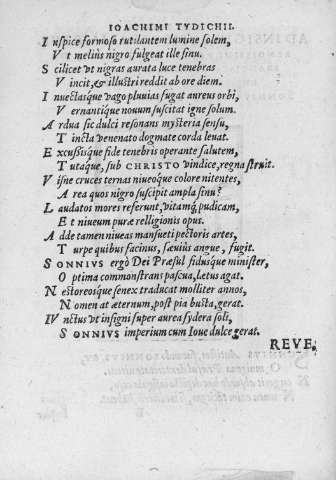 IOACHIMI TYDICHII.
Inspice formoso rutilantem lumine solem,
Vt meliùs nigro fulgeat ille sinu.
Scilicet vt nigras aurata luce tenebras
Vincit, & illustri reddit ab ore diem.
Inuectusque vago pluuias fugat aureus orbi,
Vernantique nouum suscitat igne solum.
Ardua sic dulci resonans mysteria sensu,
Tincta venenato dogmate corda leuat.
Excussisque fide tenebris operante salutem,
Tutaque, sub CHRISTO vindice, regna struit.
Visne cruces ternas niueoque colore nitentes,
Area quos nigro suscipit ampla sinu?
Laudatos mores referunt, vitamq́; pudicam,
Et niueum puræ relligionis opus.
Adde tamen niueas mansueti pectoris artes,
Turpe quibus facinus, sæuiùs angue, fugit.
SONNIVS ergò Dei Præsul fidusque minister,
Optima commonstrans pascua, lætus agat.
Nestoreosque senex traducat molliter annos,
Nomen at æternum, post pia busta, gerat.
IVnctus vt insigni super aurea sydera soli,
SONNIVS imperium cum Ioue dulce gerat.
REVE,